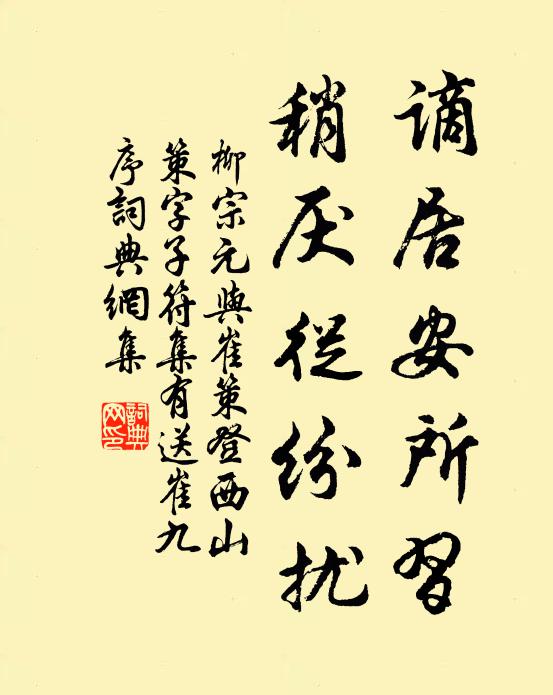 謫居安所習
稍厌從紛扰
柳宗元與崔策登西山
策字子符集有送崔九
序詞典網集
詞典網印